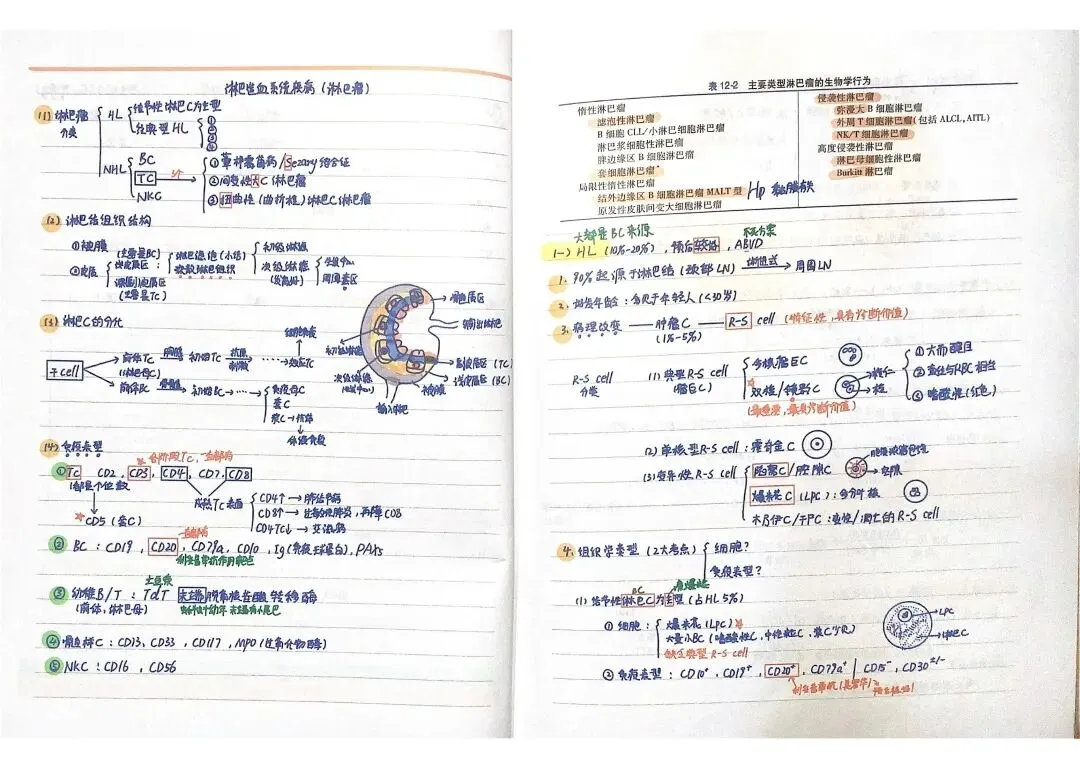 淋巴造血系统疾病(淋巴瘤)
(1) 淋巴瘤分类
HL
结节性淋巴C为主型
经典型HL ① ② ③ ④
NHL
BC
TC
NKC
① 蕈样霉菌病/Sezary综合征
② 间变性大C淋巴瘤
③ 扭曲性(曲折性)淋巴C淋巴瘤
(2) 淋巴结组织结构
① 被膜
② 皮质
(主要是BC)
浅皮质区:
淋巴滤泡(小结)
弥散淋巴组织
初级淋滤
次级淋滤
生发中心
周围套区
(主要是TC)
(3) 淋巴C的分化
干cell
前体TC
(淋巴母C)
胸腺
初始TC
抗原
刺激
……→效应TC
细胞免疫
前体BC
骨髓
初始BC→……→
免疫母C
套C
浆C→抗体
体液免疫
髓质区
输出淋巴
初级淋滤
次级淋滤
(生发中心)
副皮质区(TC)
浅皮质区(BC)
被膜
输入淋巴
(4) 免疫表型
各阶段TC,一直都有
① TC:CD2,CD3,CD4,CD7,CD8
CD5(套C)
成熟TC表面
CD4↑→肺结节病
② BC:CD19,CD20,CD79a,CD10,Ig(免疫球蛋白),PAX5
一直都有
利妥昔单抗作用靶点
③ 幼稚B/T:TdT 末端脱氧核苷酸转移酶
(前体,淋巴母)
④ 髓样C:CD13,CD33,CD117,MPO(过氧化物酶)
⑤ NKC:CD16,CD56
表12-2 主要类型淋巴瘤的生物学行为
惰性淋巴瘤
滤泡性淋巴瘤
B细胞CLL/小淋巴细胞淋巴瘤
淋巴浆细胞性淋巴瘤
脾边缘区B细胞淋巴瘤
套细胞淋巴瘤*
局限性惰性淋巴瘤
结外边缘区B细胞淋巴瘤MALT型
原发性皮肤间变大细胞淋巴瘤
侵袭性淋巴瘤
弥漫大B细胞淋巴瘤
外周T细胞淋巴瘤(包括ALCL,AITL)
NK/T细胞淋巴瘤
高度侵袭性淋巴瘤
淋巴母细胞性淋巴瘤
Burkitt淋巴瘤
Hp 黏膜相关
大都是BC来源
(一) HL(10%-20%),预后较好,ABVD
1. 90%起源于淋巴结(颈部LN)
周围LN
2. 好发年龄:多见于年轻人(<30岁)
3. 病理改变——肿瘤C——R-S cell(特征性,具有诊断价值)
(1%-5%)
R-S cell
分类
(1) 典型R-S cell
多核瘤巨C
双核/镜影C
(最重要,最具诊断价值)
核仁
核
① 大而醒目
② 直径与RBC相当
③ 嗜酸性(红色)
(2) 单核型R-S cell:霍奇金C
(3) 变异性R-S cell
陷窝C/腔隙C
空隙
爆米花C(LPC):多分叶核
木乃伊C/干尸C:变性/凋亡的R-S cell
4. 组织学类型(2大考点)
细胞?
免疫表型?
BC
(1) 结节性淋巴C为主型(占HL 5%)
① 细胞:
爆米花(LPC)
大量小BC(嗜酸性C,中性粒C,浆C少见)
缺乏典型R-S cell
LPC
② 免疫表型:CD10⁺,CD19⁺,CD20⁺,CD79a⁺|CD15⁻,CD30⁺/⁻